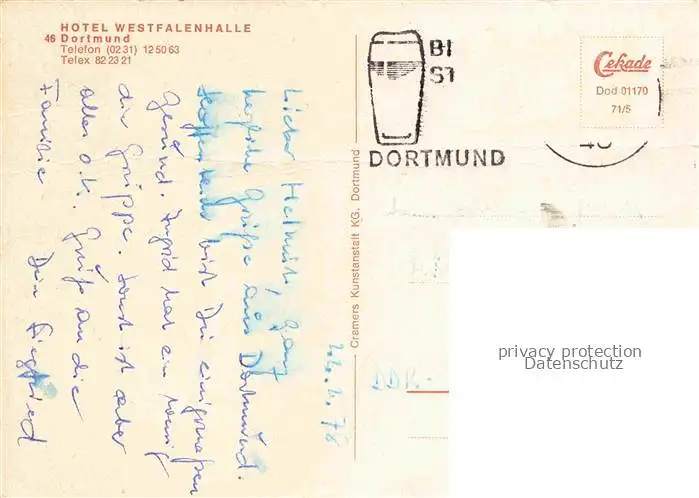 HOTEL WESTFALENHALLE
46 Dortmund
Telefon (02 31) 12 50 63
Telex 82 23 21
Lieber Helmut, ganz
herzliche Grüße aus Dortmund.
Hoffentlich bist Du einigermaßen
Gesund. Ingrid hat ein wenig
die Grippe. Sonst ist aber
alles o.k. Grüß an die
Familie Dein Siegfried
Cramers Kunstanstalt KG. Dortmund
BI
ST
DORTMUND
Cekade
Dod 01170
71/5
46
privacy protection
Datenschutz